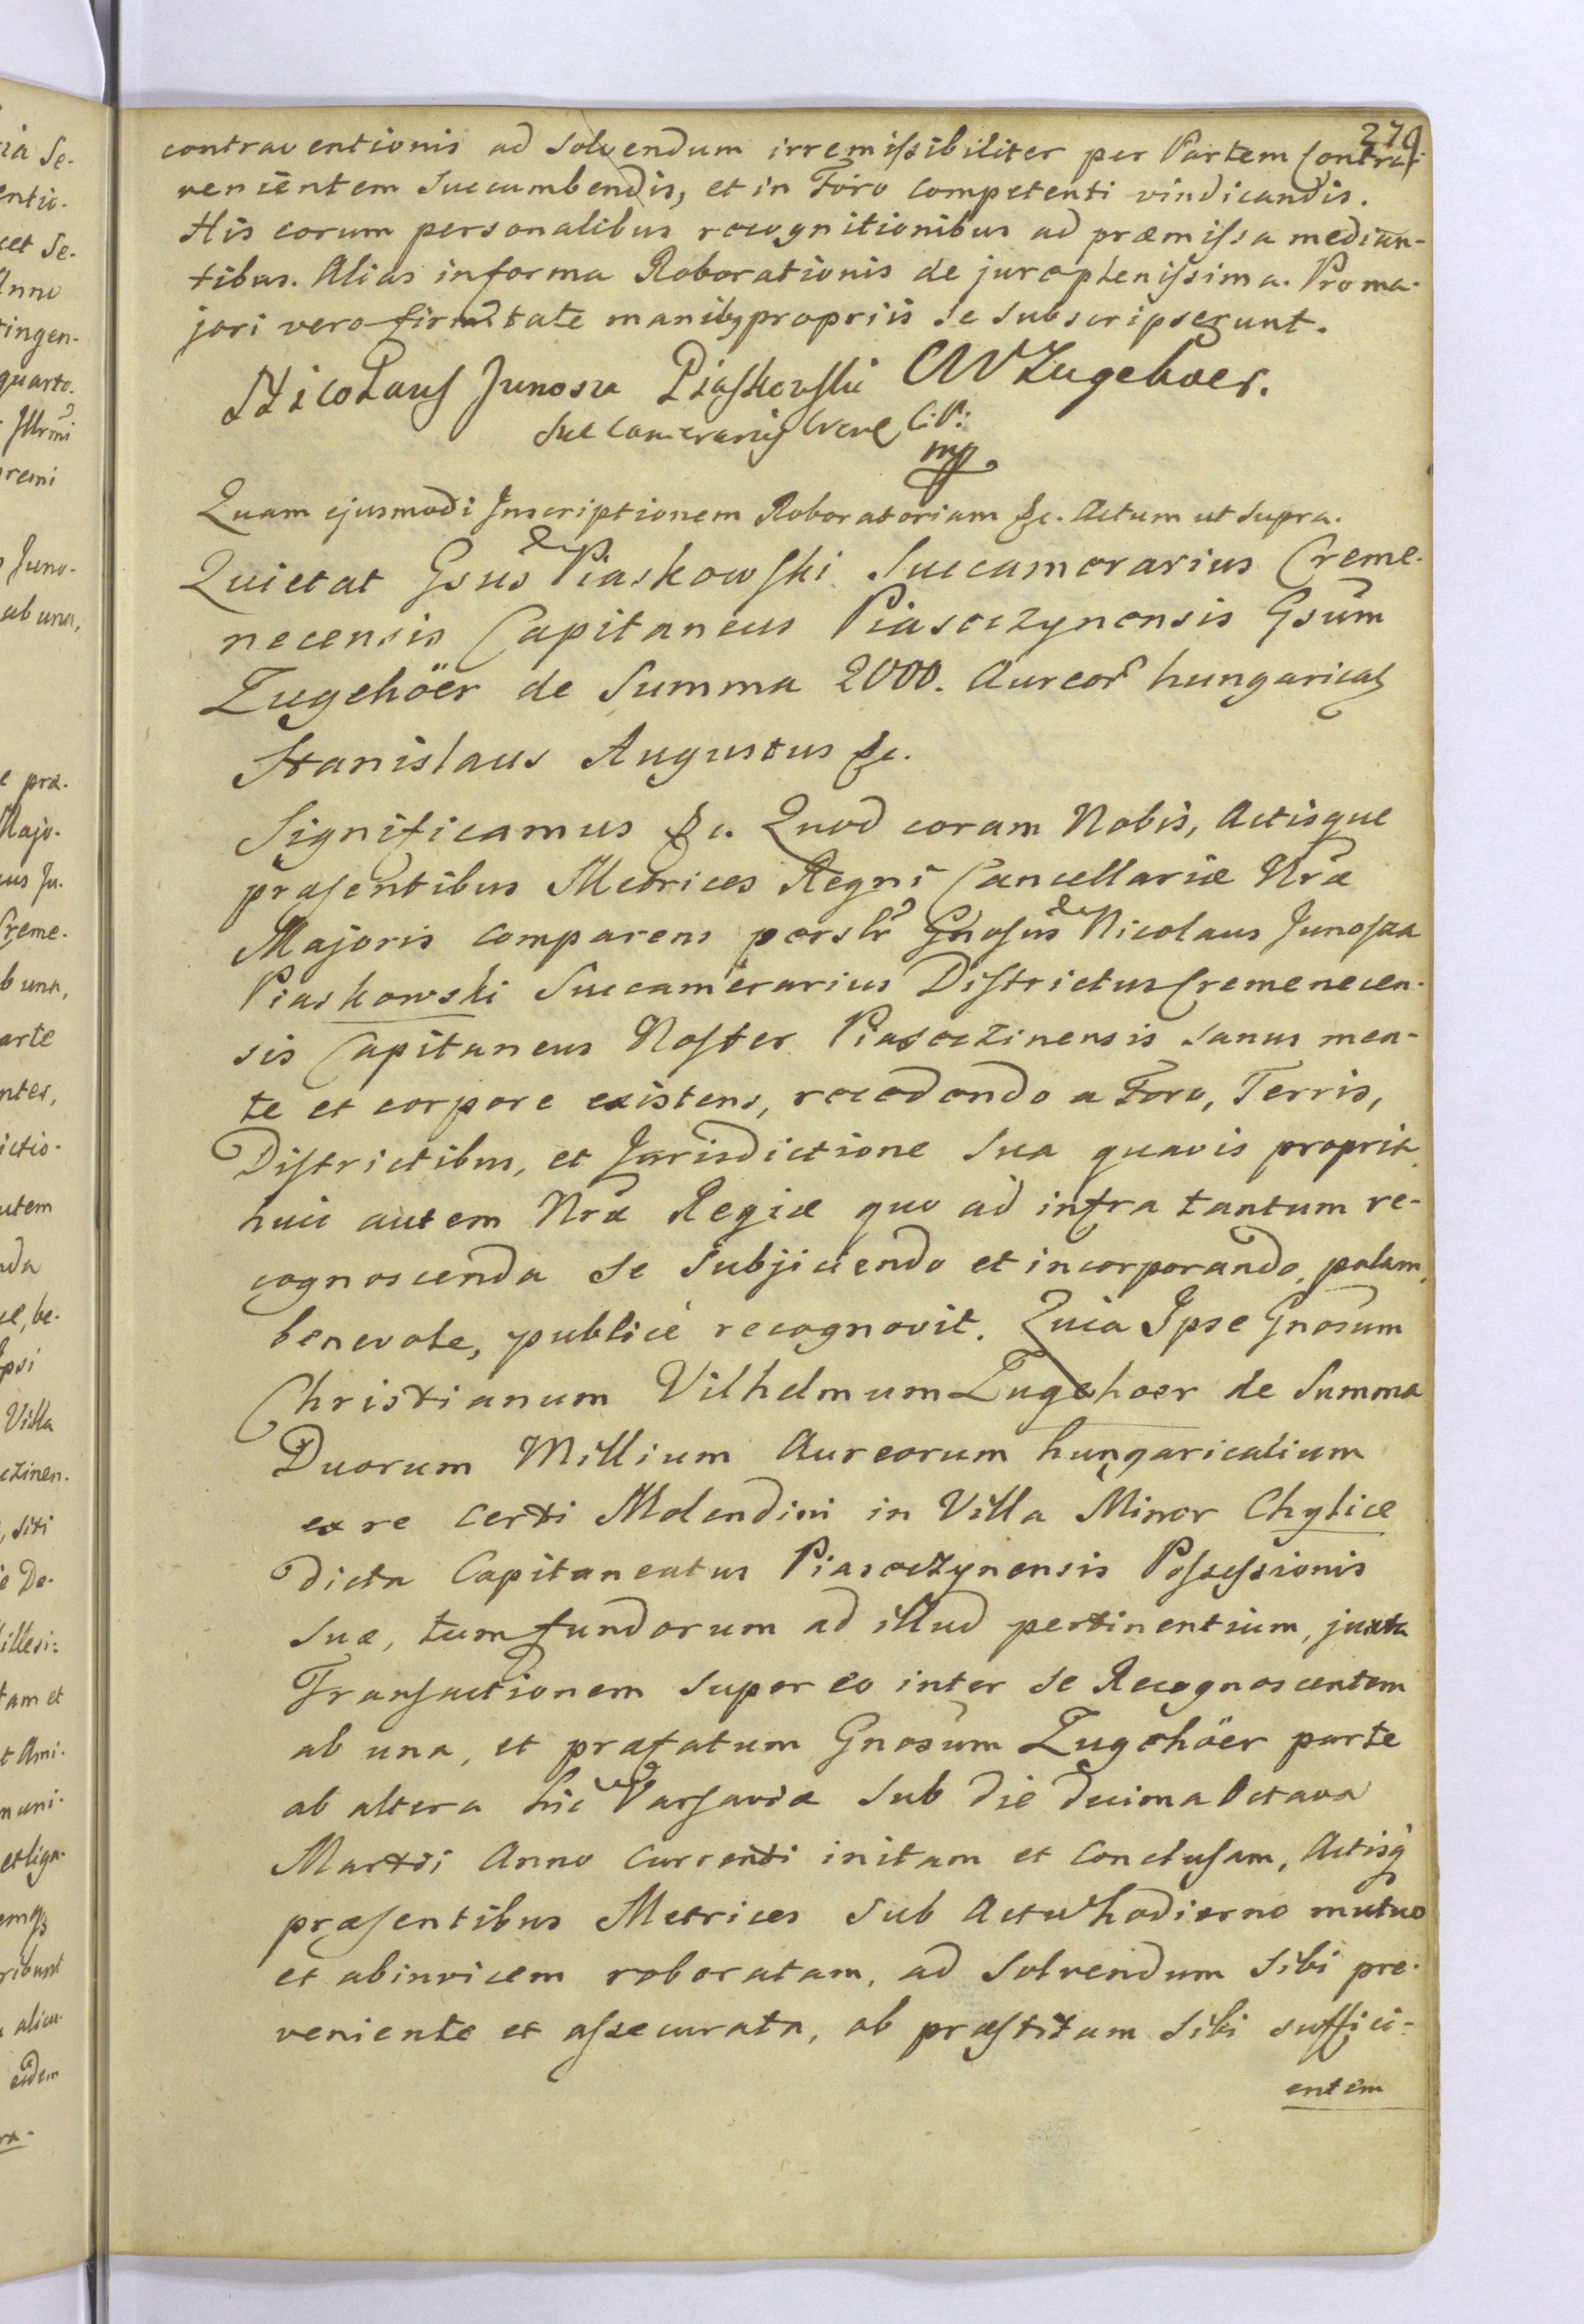 279
contraventionis ad solvendum irremissibiliter per Partem Contra-
venientem succumbendis, et in Foro competenti vindicandis.
His eorum personalibus recognitionibus ad præmissa median-
tibus. Alias informa Roborationis de jure plenissima. Pro ma-
jori vero firmitate manibq propriis se subscripserunt.
Nicolaus Junosza Piaskowski CWZugehoer.
Succamerarius Crem C:P:
mp
Quam ejusmodi Inscriptionem Roboratoriam &c. Actum ut supra.
Quietat Gsus de Piaskowski Succamerarius Creme-
necensis Capitaneus Piasoczynensis Gsum
Zugehöer de Summa 2000. Aureor hungarical
Stanislaus Augustus &c.
Significamus &c. Quod coram Nobis, Actisque
præsentibus Metrices Regni Cancellariæ Nræ
Majoris comparens persлr Gnosus de Nicolaus Junosza
Piaskowski Succamerarius Districtus Cremenecen-
sis Capitaneus Noster Piasoczinensis sanus men-
te et corpore existens, recedendo a Foro, Terris,
Districtibus, et Jurisdictione sua quavis propria
huic autem Nræ Regiæ quo ad infra tantum re-
cognoscenda se subjiciendo et incorporando, palam,
benevole, publicè recognovit. Quia Ipse Gnosum
Christianum Vilhelmum Zugehoer de Summa
Duorum Millium Aureorum hungaricalium
ex re certi Molendini in Villa Minor Chylice
dicta Capitaneatus Piasoczynensis Possessionis
suæ, tum fundorum ad illud pertinentium, juxta
Transactionem super eo inter se Recognoscentem
ab una, et præfatum Gnosum Zugehöer parte
ab altera hic Varsaviæ sub die decima Octava
Martii Anno currenti initam et conclusam, Actisq
præsentibus Metrices sub actu hodierno mutuo
et abinvicem roboratam, ad solvendum sibi pre-
veniente et assecurata, ob præstitam sibi suffici-
entem